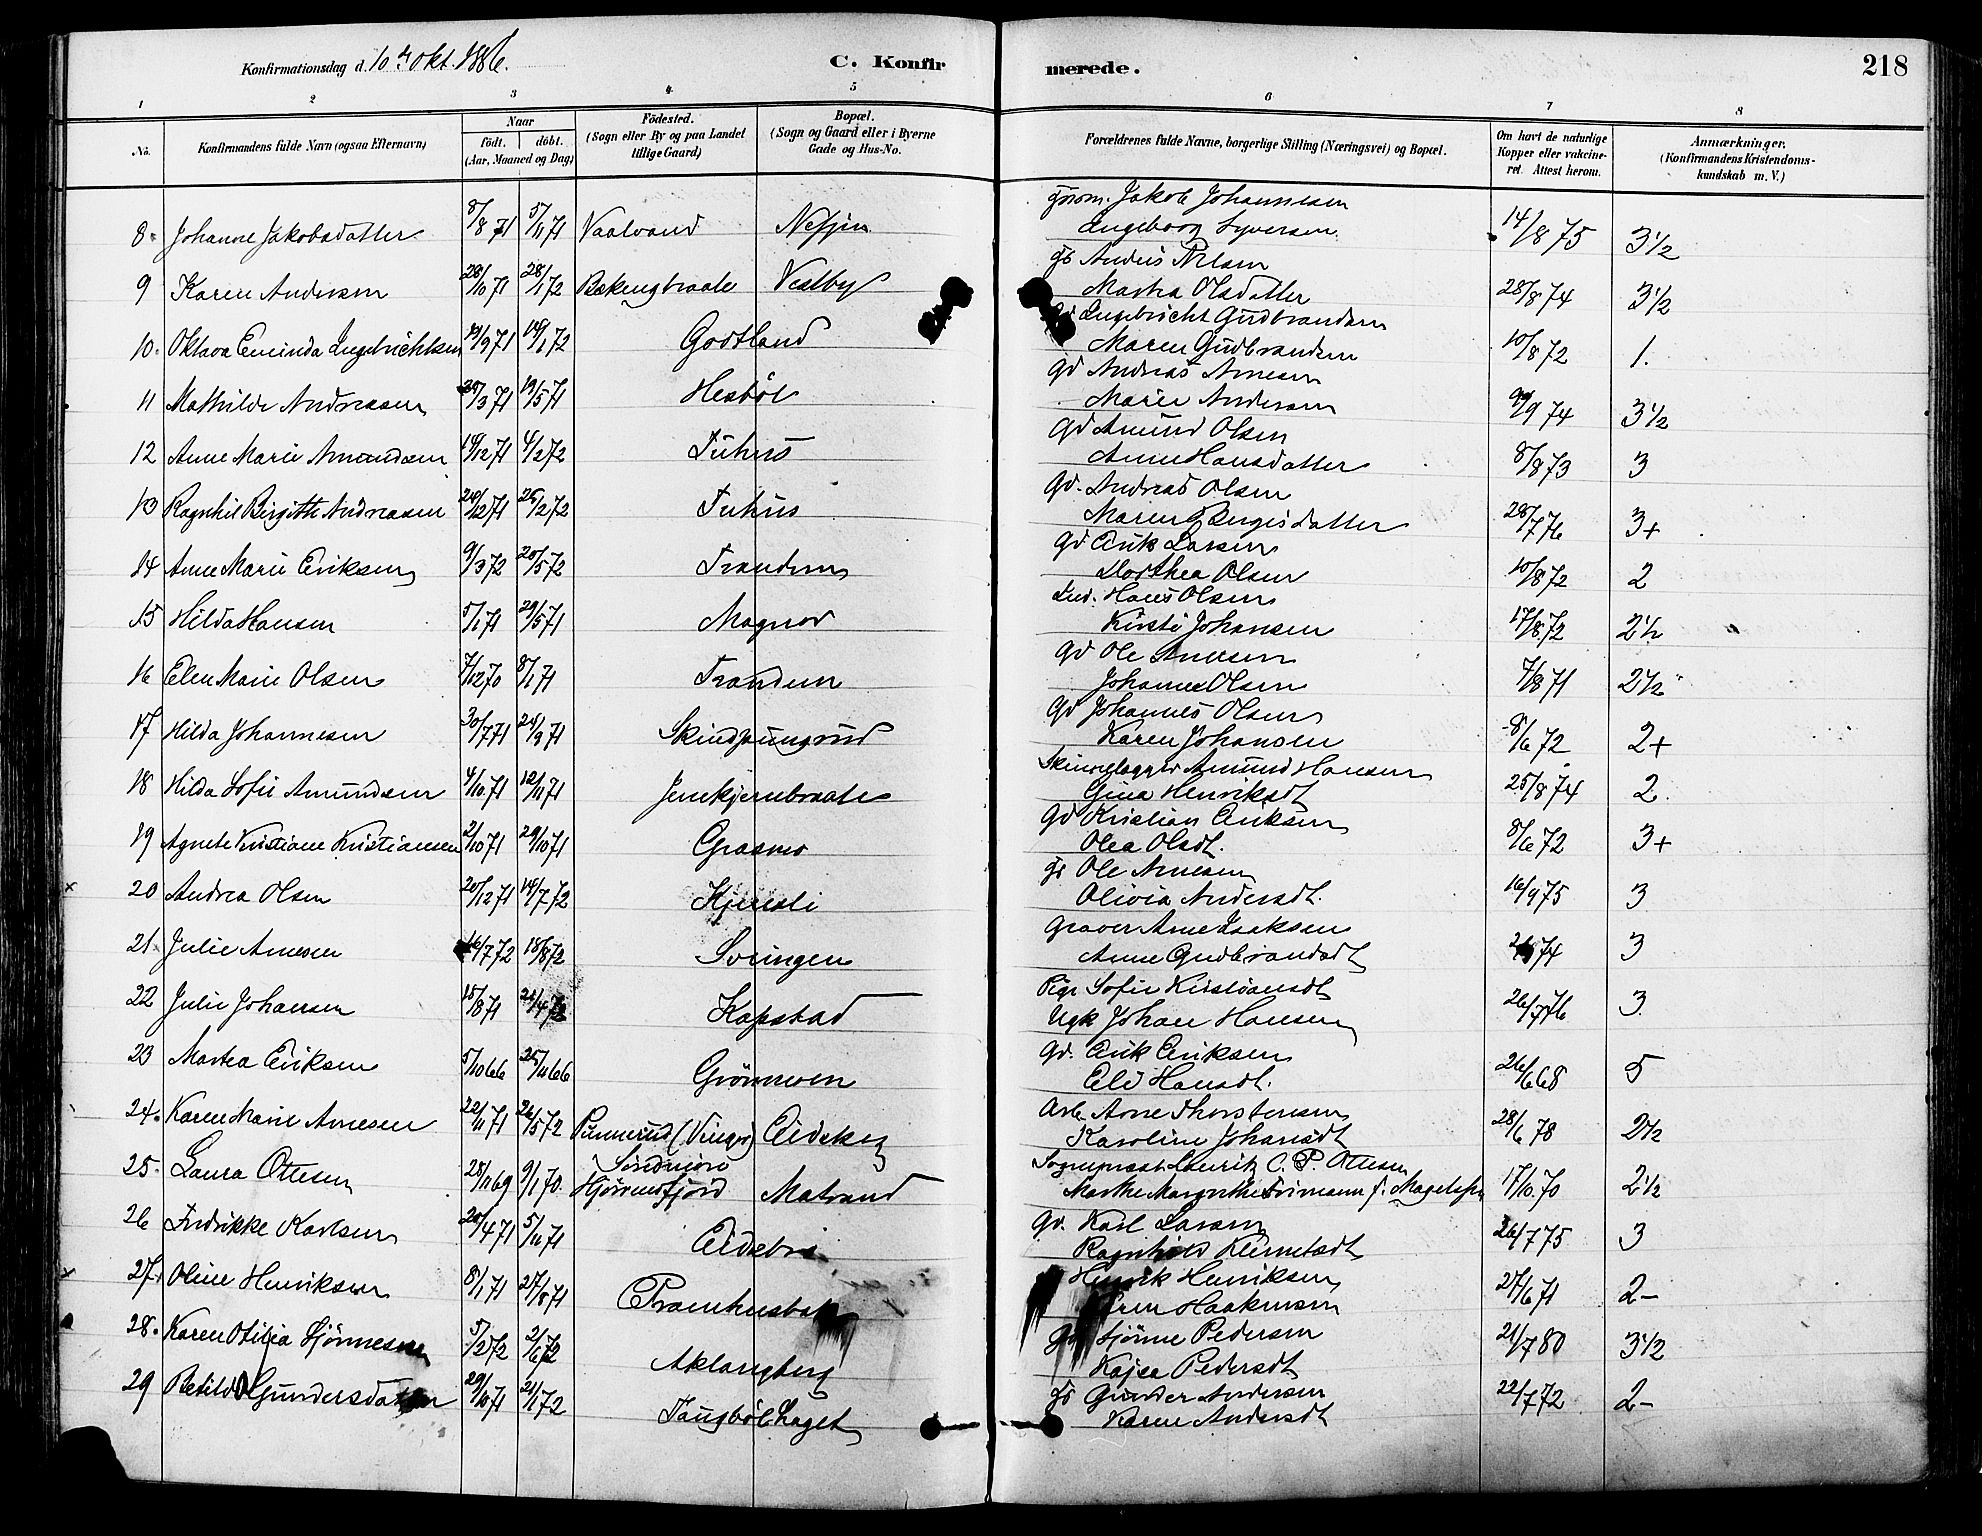 Konfirmationsdag d. 10de Okt. 1886. C. Konfirmerede. 218
1 2 3 4 5 6 7 8
No. Konfirmandens fulde Navn (ogsaa Efternavn) Naar födt. döbt. (Aar, Maaned og Dag) Födested. (Sogn eller By og paa Landet tillige Gaard) Bopæl. (Sogn og Gaard eller i Byerne Gade og Hus-No. Forældrenes fulde Navne, borgerlige Stilling (Næringsvei) og Bopæl. Om havt de naturlige Kopper eller vakcineret. Attest herom. Anmærkninger. (Konfirmandens Kristendomskundskab m. V.)
8 Johanne Jakobsdatter 8/8 71 5/11 71 Vaalvand Jakob Johannesen Ingeborg Syversen 14/8 75 3½
9 Karen Andersen 28/10 71 28/1 72 Vestby Anders Nilsen Martha Olsdatter 28/8 74 3½
10. Oktava Eminda Ingebrichtsen 14/1 72 Godtland Ingebricht Gudbrandsen Maren Gudbrandsen 10/8 72 1.
11 Mathilde Andreasen 19/5 71 Hesböl Gd Andreas Arnesen Maren Andersen 3½
12 Anne Marie Amundsen 19/12 71 4/2 72 Tuhus Gd Amund Olsen Anne Hansdatter 8/8 73 3
13 Ragnhil Birgitte Andreasen 24/12 71 25/2 72 Tuhus Gd. Andreas Olsen Maren 28/7 76 3+
14 Anne Marie Eriksen 9/3 72 20/5 72 Trandem Gd Erik Larsen Dorthea Olsen 10/8 72 2
15 Hilda Hansen 5/1 71 29/5 71 Magnor Ind. Hans Olsen Kirsti Johansen 17/8 72 2½
16 Elen Marie Olsen 7/12 70 8/1 71 Trandem Gd Ole Johanne Olsen 7/8 71 2½
17 Hilda Johannesen 30/7 71 24/9 71 Skindpungrud Gd Johannes Olsen Karen Johansen 8/6 72 2+
18 Hilda Sofie Amundsen 4/10 71 12/11 71 Amund Hansen Gina Henriksdt 25/8 74 2.
19 Agnete Kristiane Kristiansen 2/10 71 29/10 71 Grasmo Gd Kristian Eriksen Olea Olsdt. 8/6 72 3+
20 Andrea Olsen 20/12 71 14/7 72 Ole Arnesen Olivia Andersdt. 16/9 75 3
21. Julie Arnesen 16/7 72 18/8 72 Svingen Graver Arne Isaksen Anne Gudbrandsdt 74 3
22 Julie Johansen 15/8 71 Kapstad Pige Sofie Kristiansdt Ugk Johan Hansen 26/7 76 3.
23 Martea Eriksen 5/10 66 25/11 66 Grönmoen Gd. Erik Eriksen Eli Hansdt. 26/6 68 5
24. Karen Marie Arnesen 22/11 71 26/5 72 Punnerud (Vinger) Eidskog Arb. Arne Thorstensen Karoline Johansdt 28/6 78 2½
25. Laura Ottesen 28/11 69 9/1 70. Söndmöre Hjörundfjord Matrand Sognepræst Laurits C. P. Ottesen Marthe Margrethe Frimann f. Magelssen 17/10 70 2½
26 Fredrikke Karlsen 20/4 71 5/11 71 Gd. Karl Larsen Ragnhild 26/7 75 3
27. Oline Henriksen 8/1 71 27/8 71 Pramhusbak Henrik Henriksen Haakensen 27/6 71 2-
28. Karen Otilia Sjönnesen 5/2 72 2/6 72 Aklangberg Gd Sjönne Pedersen Kajsa Pedersdt 21/7 80 3½
29 Betild Gundersdatter 29/10 71 21/1 72 Taugböl Gunder Andersen Karen Andersdt 22/7 72 2-